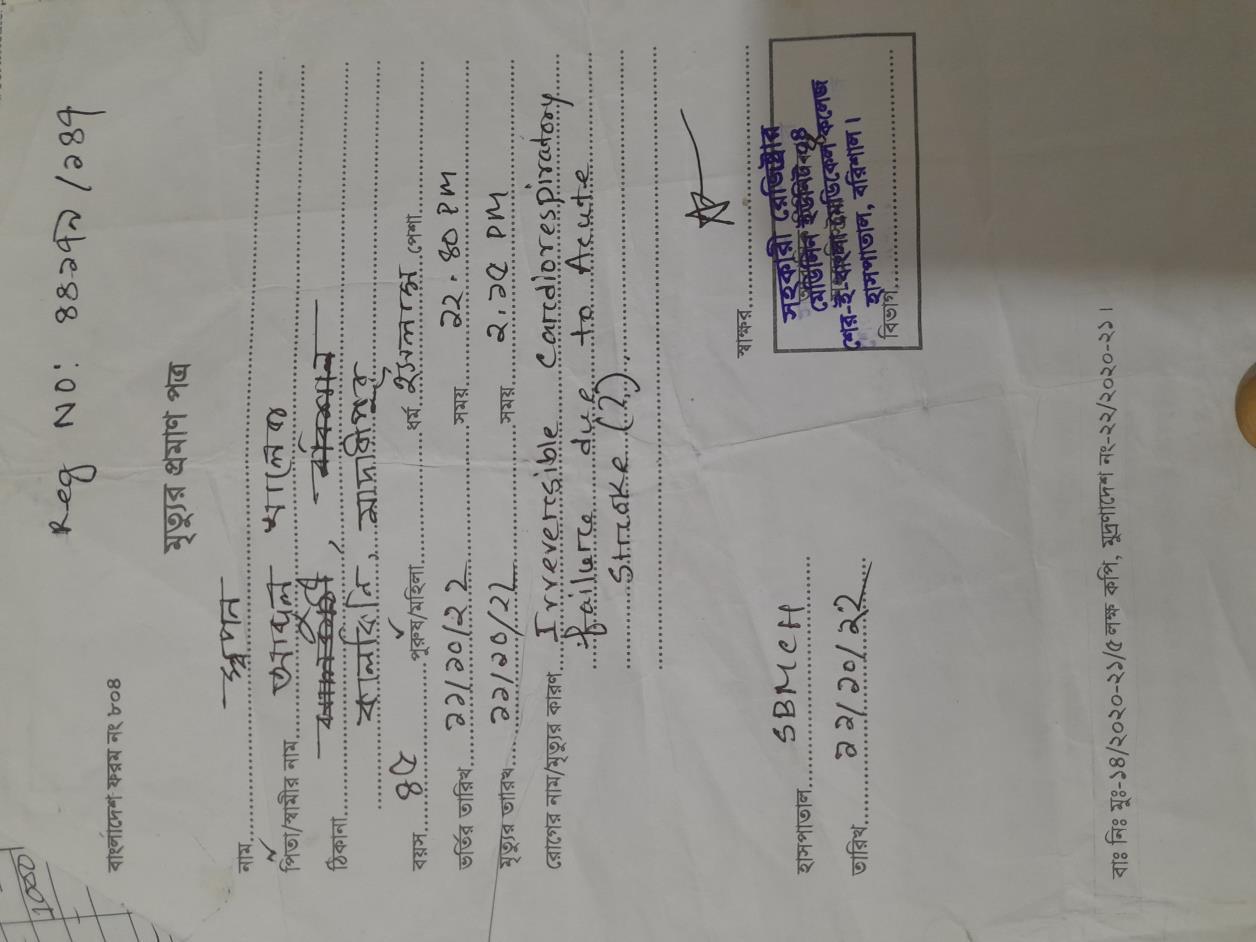 1000
Reg NO: ৪৪২৭৯/১৪৭
বাংলাদেশ ফরম নং ৮০৪
মৃত্যুর প্রমাণ পত্র
নাম স্বপন
পিতা/স্বামীর নাম আব্দুল খালেক
ঠিকানা
কালকিনি, মাদারীপুর
বয়স ৪৫ পুরুষ/মহিলা ধর্ম ইসলাম পেশা
ভর্তির তারিখ ২১/১০/২২ সময় ১২.৪০ PM
মৃত্যুর তারিখ ২১/১০/২২ সময় ২.১৫ PM
রোগের নাম/মৃত্যুর কারণ Irreversible Cardiorespiratory
failure due to Acute
Stroke (?)
স্বাক্ষর
সহকারী রেজিষ্ট্রার
মেডিসিন ইউনিট
শের-ই-বাংলা মেডিকেল কলেজ
হাসপাতাল, বরিশাল।
বিভাগ
হাসপাতাল SBMCH
তারিখ ২১/১০/২২
বাঃ নিঃ মুঃ-১৪/২০২০-২১/৫ লক্ষ কপি, মুদ্রণাদেশ নং-২২/২০২০-২১।